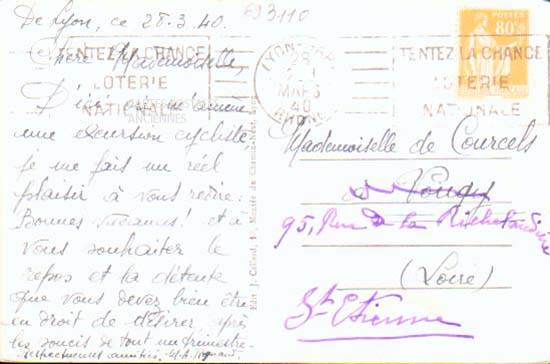 De Lyon, ce 28.3.40.
693110
Chère Mademoiselle,
D'ici où m'amène
une excursion cycliste,
je me fais un réel
plaisir à vous redire:
Bonnes vacances! et à
vous souhaiter le
repos et la détente
que vous devez bien être
en droit de désirer après
les soucis de tout un trimestre.
respectueuses amitiés.
TENTEZ LA CHANCE
LOTERIE
NATIONALE
LYON-GARE
28
MARS
40
RHONE
TENTEZ LA CHANCE
LOTERIE
NATIONALE
POSTES
80c
Edit. J. Cellard
Mademoiselle de Courcels
à Vougy
95, Rue de la Richelandière
(Loire)
St-Etienne